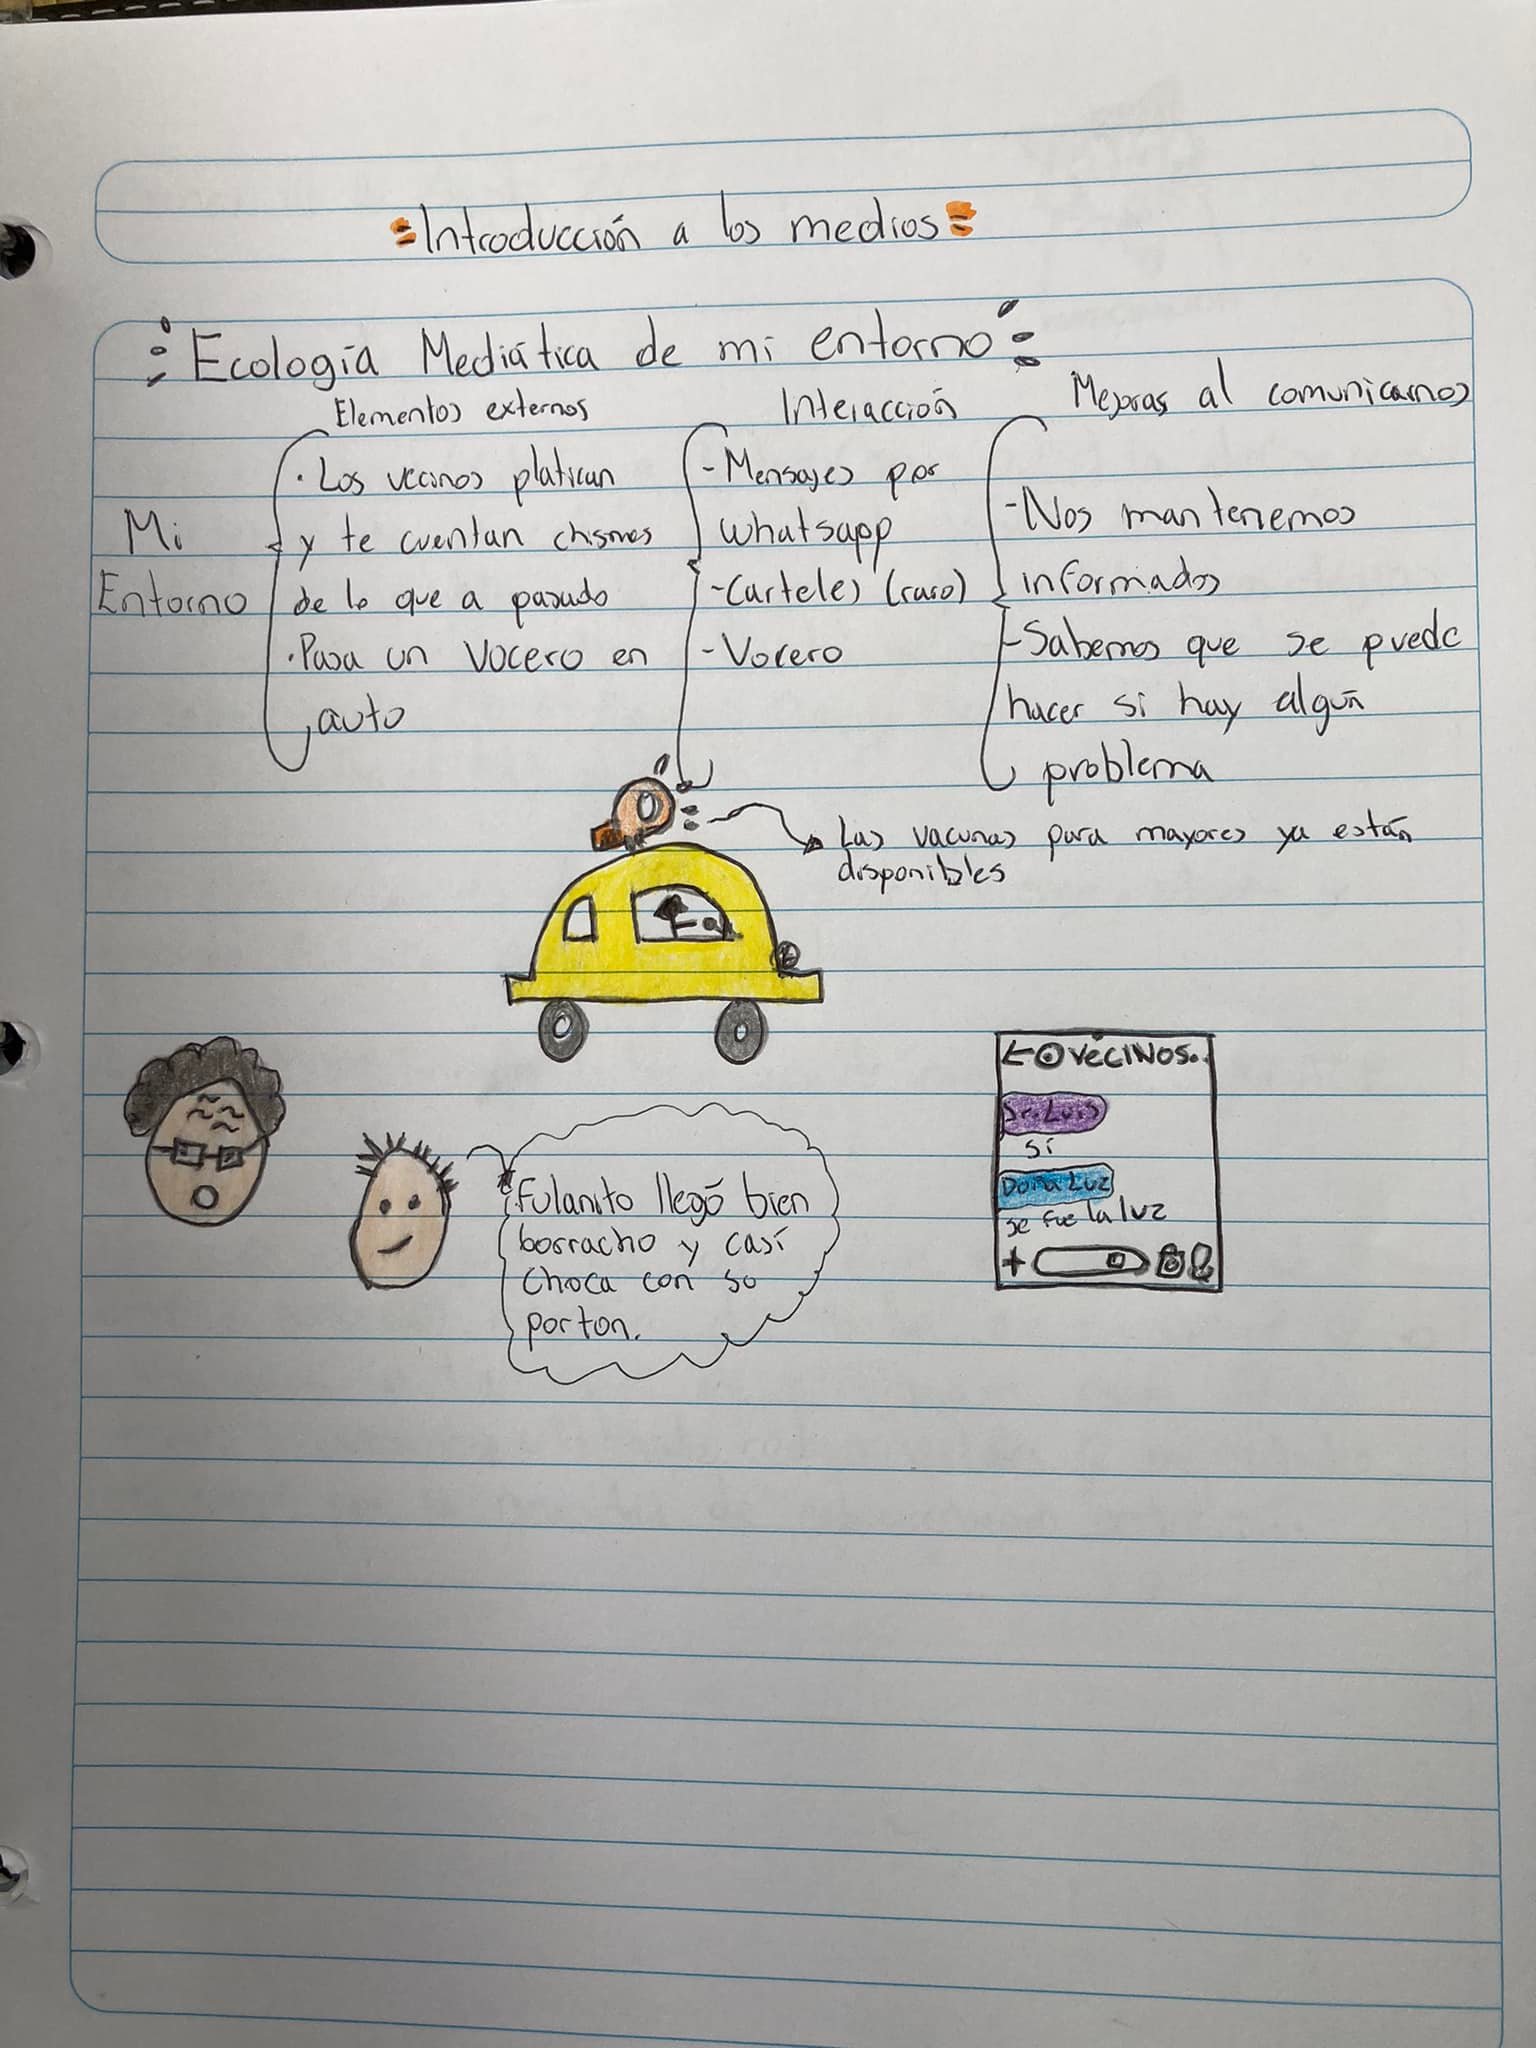 Introducción a los medios
Ecología Mediática de mi entorno
Elementos externos
Interacción
Mejoras al comunicarnos
Mi
Entorno
· Los vecinos platican
y te cuentan chismes
de lo que a pasado
· Pasa un vocero en
auto
- Mensajes por
whatsapp
- Carteles (raro)
- Vocero
- Nos mantenemos
informados
- Sabemos que se puede
hacer si hay algún
problema
Las vacunas para mayores ya están
disponibles
Fulanito llegó bien
borracho y casi
choca con so
porton.
VECINOS..
Sr. Luis
si
Doña Luz
se fue la luz